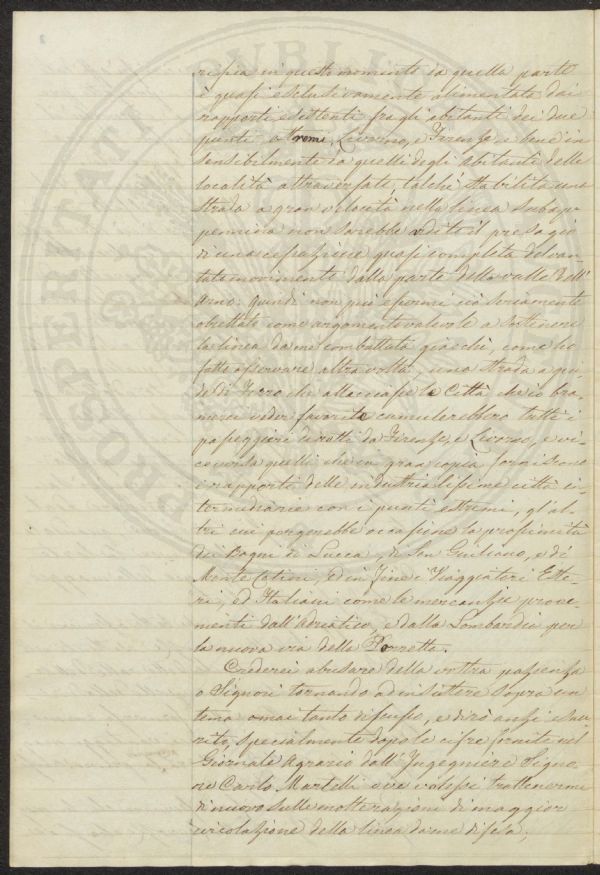 in questo momento da quella parte
è quasi esclusivamente alimentata dai
rapporti esistenti fra gli abitanti dei due
punti estremi, Livorno, e Firenze e bene in
sensibilmente da quelli degli abitanti delle
località attraversate, talchè stabilita una
strada a gran velocità nella linea subap-
pennina non sarebbe ardito il presagio
di una cessazione quasi completa del van-
tato movimento dalla parte della valle dell'
Arno: quindi non può essermi ciò seriamente
obiettato come argomento valevole a sostenere
la linea da me combattuta giacchè, come ho
fatto osservare altra volta, una strada a gui-
de di Ferro che allacciasse le Città che io bra-
merei veder favorite cumulerebbero tutti i
passeggieri diretti da Firenze, a Livorno, e vi-
ceversa quelli che in gran copia forniscono
i rapporti delle industriosissime città in-
termediarie con i punti estremi, gl'al-
tri cui porgerebbe occasione la prossimità
dei Bagni di Lucca, di San Giuliano, e di
Monte Catini, ed in fine i Viaggiatori Este-
ri, ed Italiani come le mercanzie prove-
nienti dall'Adriatico, e dalla Lombardia per
la nuova via della Porretta.
Crederei abusare della vostra pazienza
o Signori tornando ad insistere sopra un
tema omai tanto discusso, e dirò anzi esau-
rito, specialmente dopo le cifre fornite nel
Giornale Agrario dall'Ingegniere Signo-
re Carlo Martelli ove volessi trattenermi
di nuovo sulle molte ragioni di maggior
circolazione della linea da me difesa,
PROSPERITATI PUBLICAE